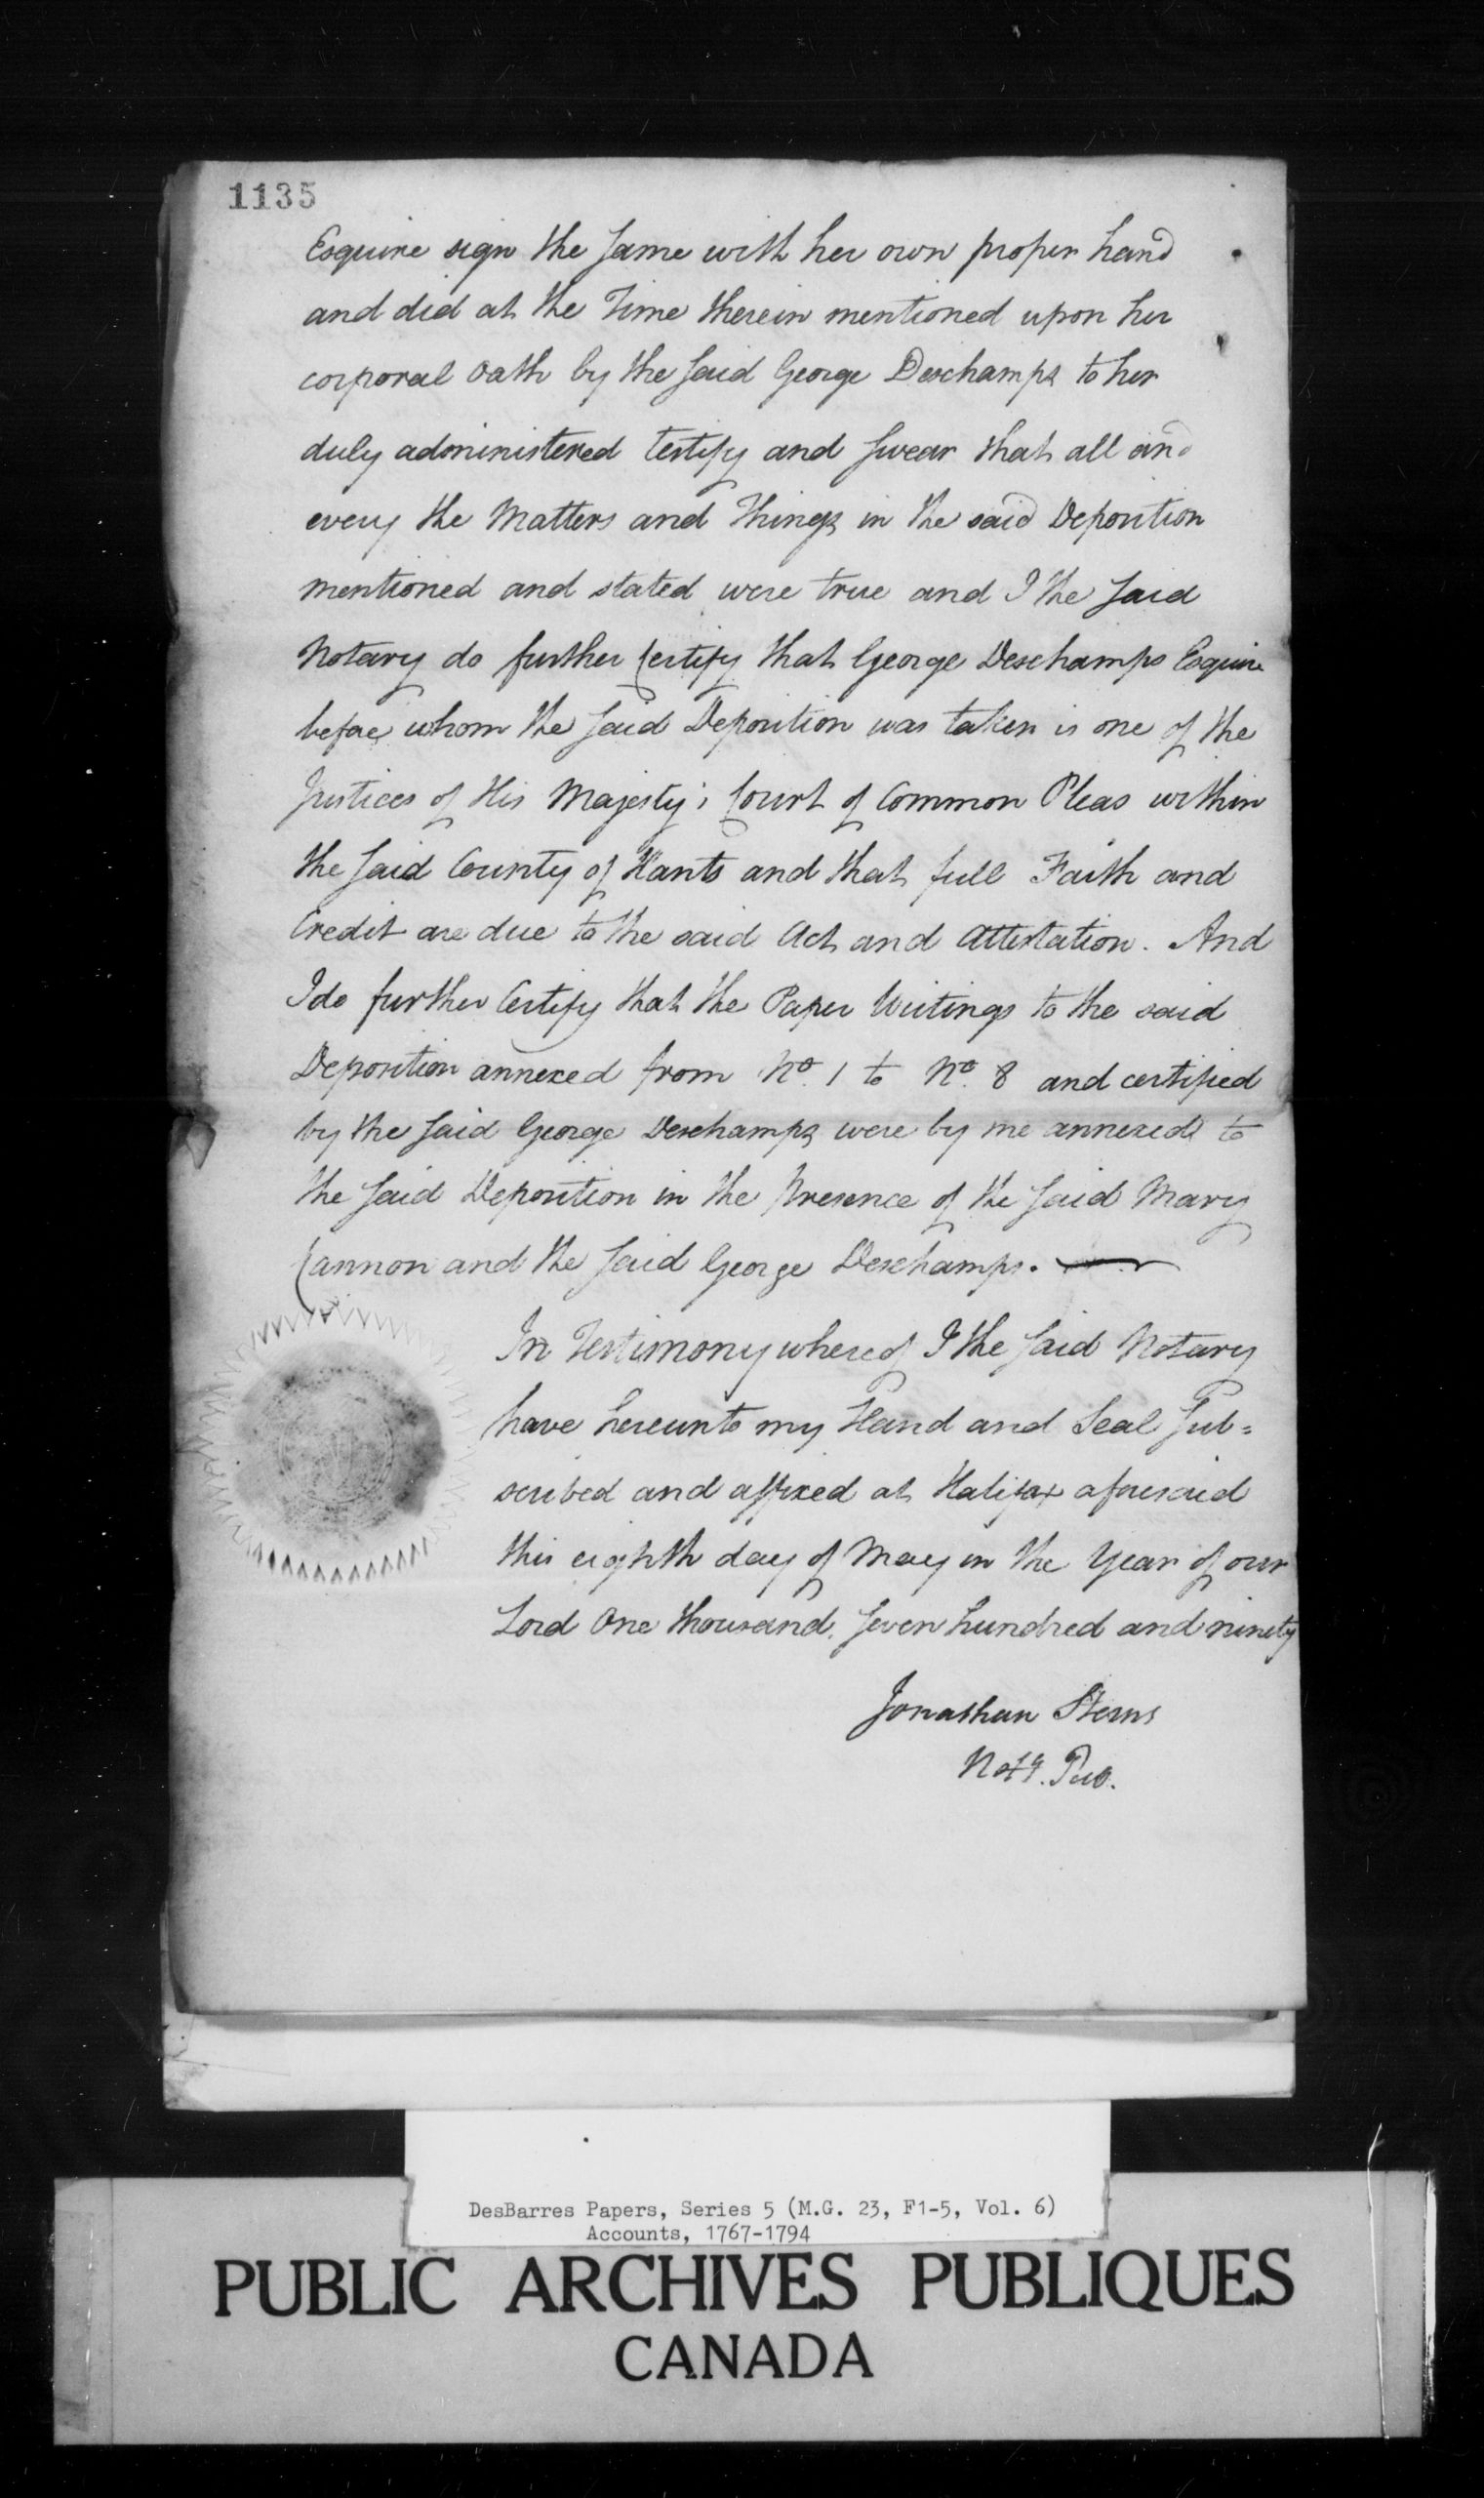 1135
Esquire sign the same with her own proper hand
and did at the Time therein mentioned upon her
corporal Oath by the said George Deschamps to her
duly administered testify and swear that all and
every the Matters and Things in the said Deposition
mentioned and stated were true and I the said
Notary do further Certify that George Deschamps Esquire
before whom the said Deposition was taken is one of the
Justices of His Majesty's Court of Common Pleas within
the said County of Hants and that full Faith and
Credit are due to the said Act and Attestation. And
I do further Certify that the Paper Writings to the said
Deposition annexed from No. 1 to No. 8 and certified
by the said George Deschamps were by me annexed to
the said Deposition in the Presence of the said Mary
Cannon and the said George Deschamps.
In Testimony whereof I the said Notary
have hereunto my Hand and Seal Sub=
scribed and affixed at Halifax aforesaid
this eighth day of May in the Year of our
Lord One thousand, seven hundred and ninety
Jonathan Sterns
Noty. Pub.
DesBarres Papers, Series 5 (M.G. 23, F1-5, Vol. 6)
Accounts, 1767-1794
PUBLIC ARCHIVES PUBLIQUES
CANADA